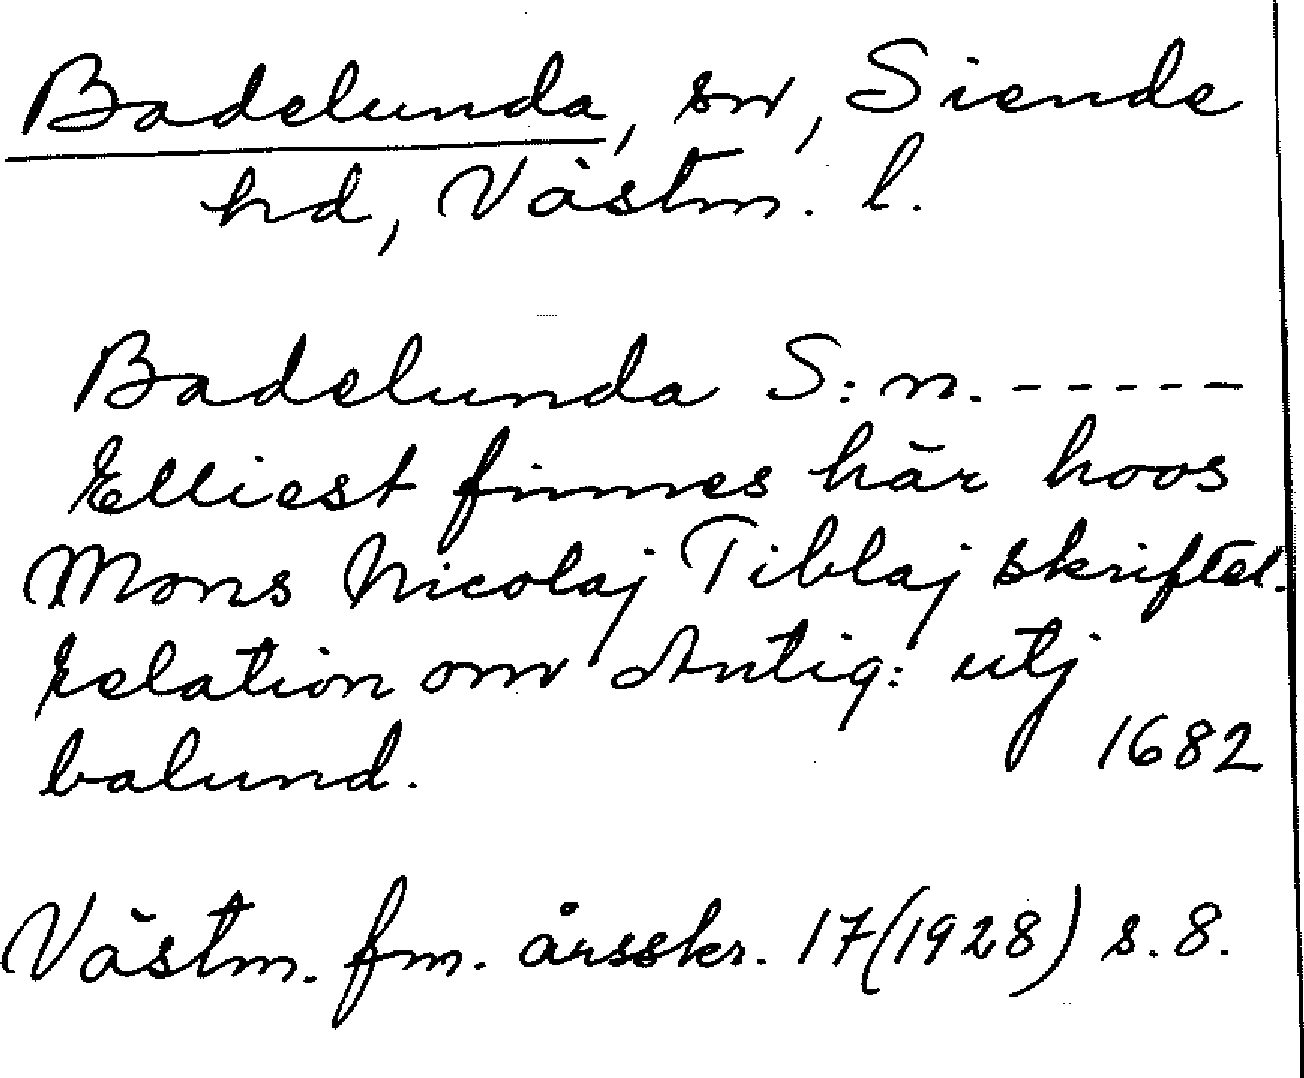 Badelunda, sn, Siende
hd, Västm. l.
Badelunda S:n. -----
Elliest finnes här hoos
Mons Nicolaj Tiblaj skriftel.
relation om Antiq: utj
balund. 1682
Västm. fm. årsskr. 17(1928) s. 8.